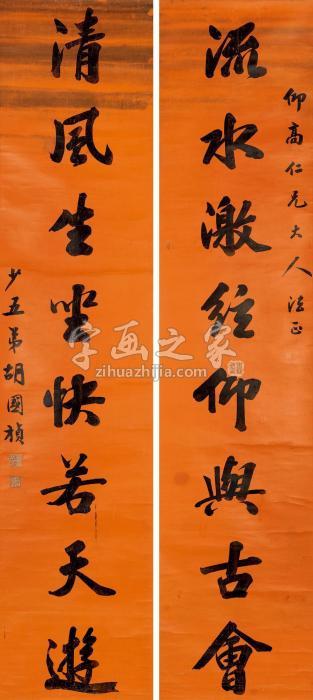 仰高仁兄大人法正
流水激絃仰與古會
清風生坐快若天遊
少五弟胡國楨
字画之家
zihuazhijia.com